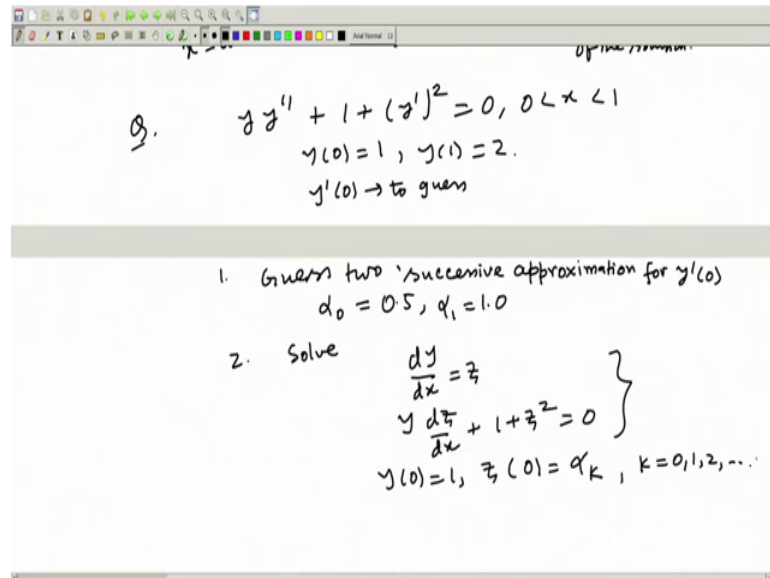 of the
Q. y y'' + 1 + (y')² = 0, 0 < x < 1
y(0) = 1, y(1) = 2.
y'(0) → to guess
1. Guess two successive approximation for y'(0)
α₀ = 0.5, α₁ = 1.0
2. Solve dy/dx = z
y dz/dx + 1 + z² = 0
y(0) = 1, z(0) = αₖ, k = 0, 1, 2, ....